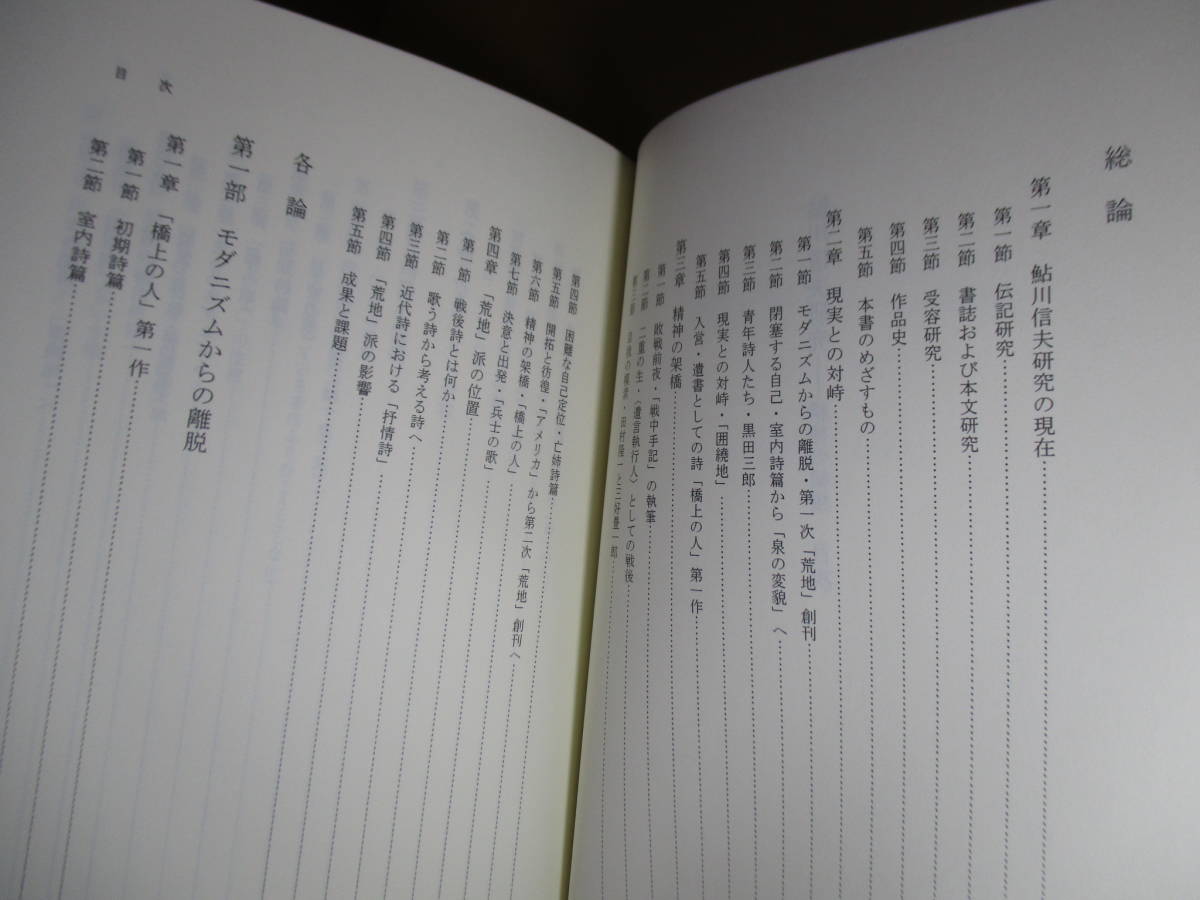 総論
第一章 鮎川信夫研究の現在
第一節 伝記研究
第二節 書誌および本文研究
第三節 受容研究
第四節 作品史
第五節 本書のめざすもの
第二章 現実との対峙
第一節 モダニズムからの離脱・第一次「荒地」創刊
第二節 閉塞する自己・室内詩篇から「泉の変貌」へ
第三節 青年詩人たち・黒田三郎
第四節 現実との対峙・「囲繞地」
第五節 入営・遺書としての詩「橋上の人」第一作
第三章 精神の架橋
第一節 敗戦前夜・「戦中手記」の執筆
第二節 二重の生・〈遺言執行人〉としての戦後
第三節 田村隆一と三好豊一郎
第四節 困難な自己定位・亡姉詩篇
第五節 開拓と彷徨・「アメリカ」から第二次「荒地」創刊へ
第六節 精神の架橋・「橋上の人」
第七節 決意と出発・「兵士の歌」
第四章 「荒地」派の位置
第一節 戦後詩とは何か
第二節 歌う詩から考える詩へ
第三節 近代詩における「抒情詩」
第四節 「荒地」派の影響
第五節 成果と課題
各論
第一部 モダニズムからの離脱
第一章 「橋上の人」第一作
第一節 初期詩篇
第二節 室内詩篇
目次